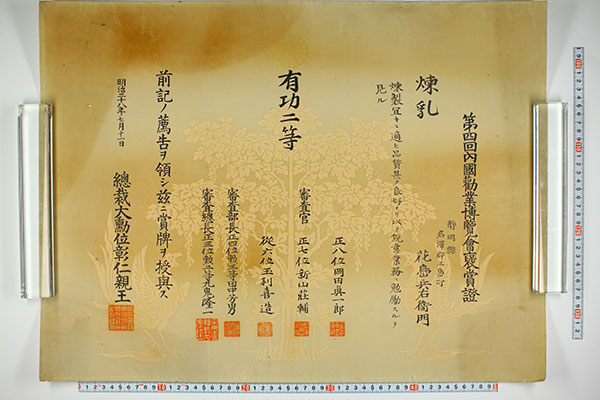 第四回内國勸業博覽會褒賞證
靜岡縣
君澤郡三島町
花島兵右衛門
煉乳
煉製宜キニ適ヒ品質具ニ良好ナリ以テ鋭意業務ニ勉勵スルヲ
見ル
有功二等
審査官 正八位 岡田眞一郎
正七位 新山莊輔
從六位 玉利喜造
審査部長 正四位勲三等 田中芳男
審査總長 正三位勲二等 九鬼隆一
前記ノ薦告ヲ領シ茲ニ賞牌ヲ授與ス
明治二十八年七月十一日
總裁大勳位彰仁親王